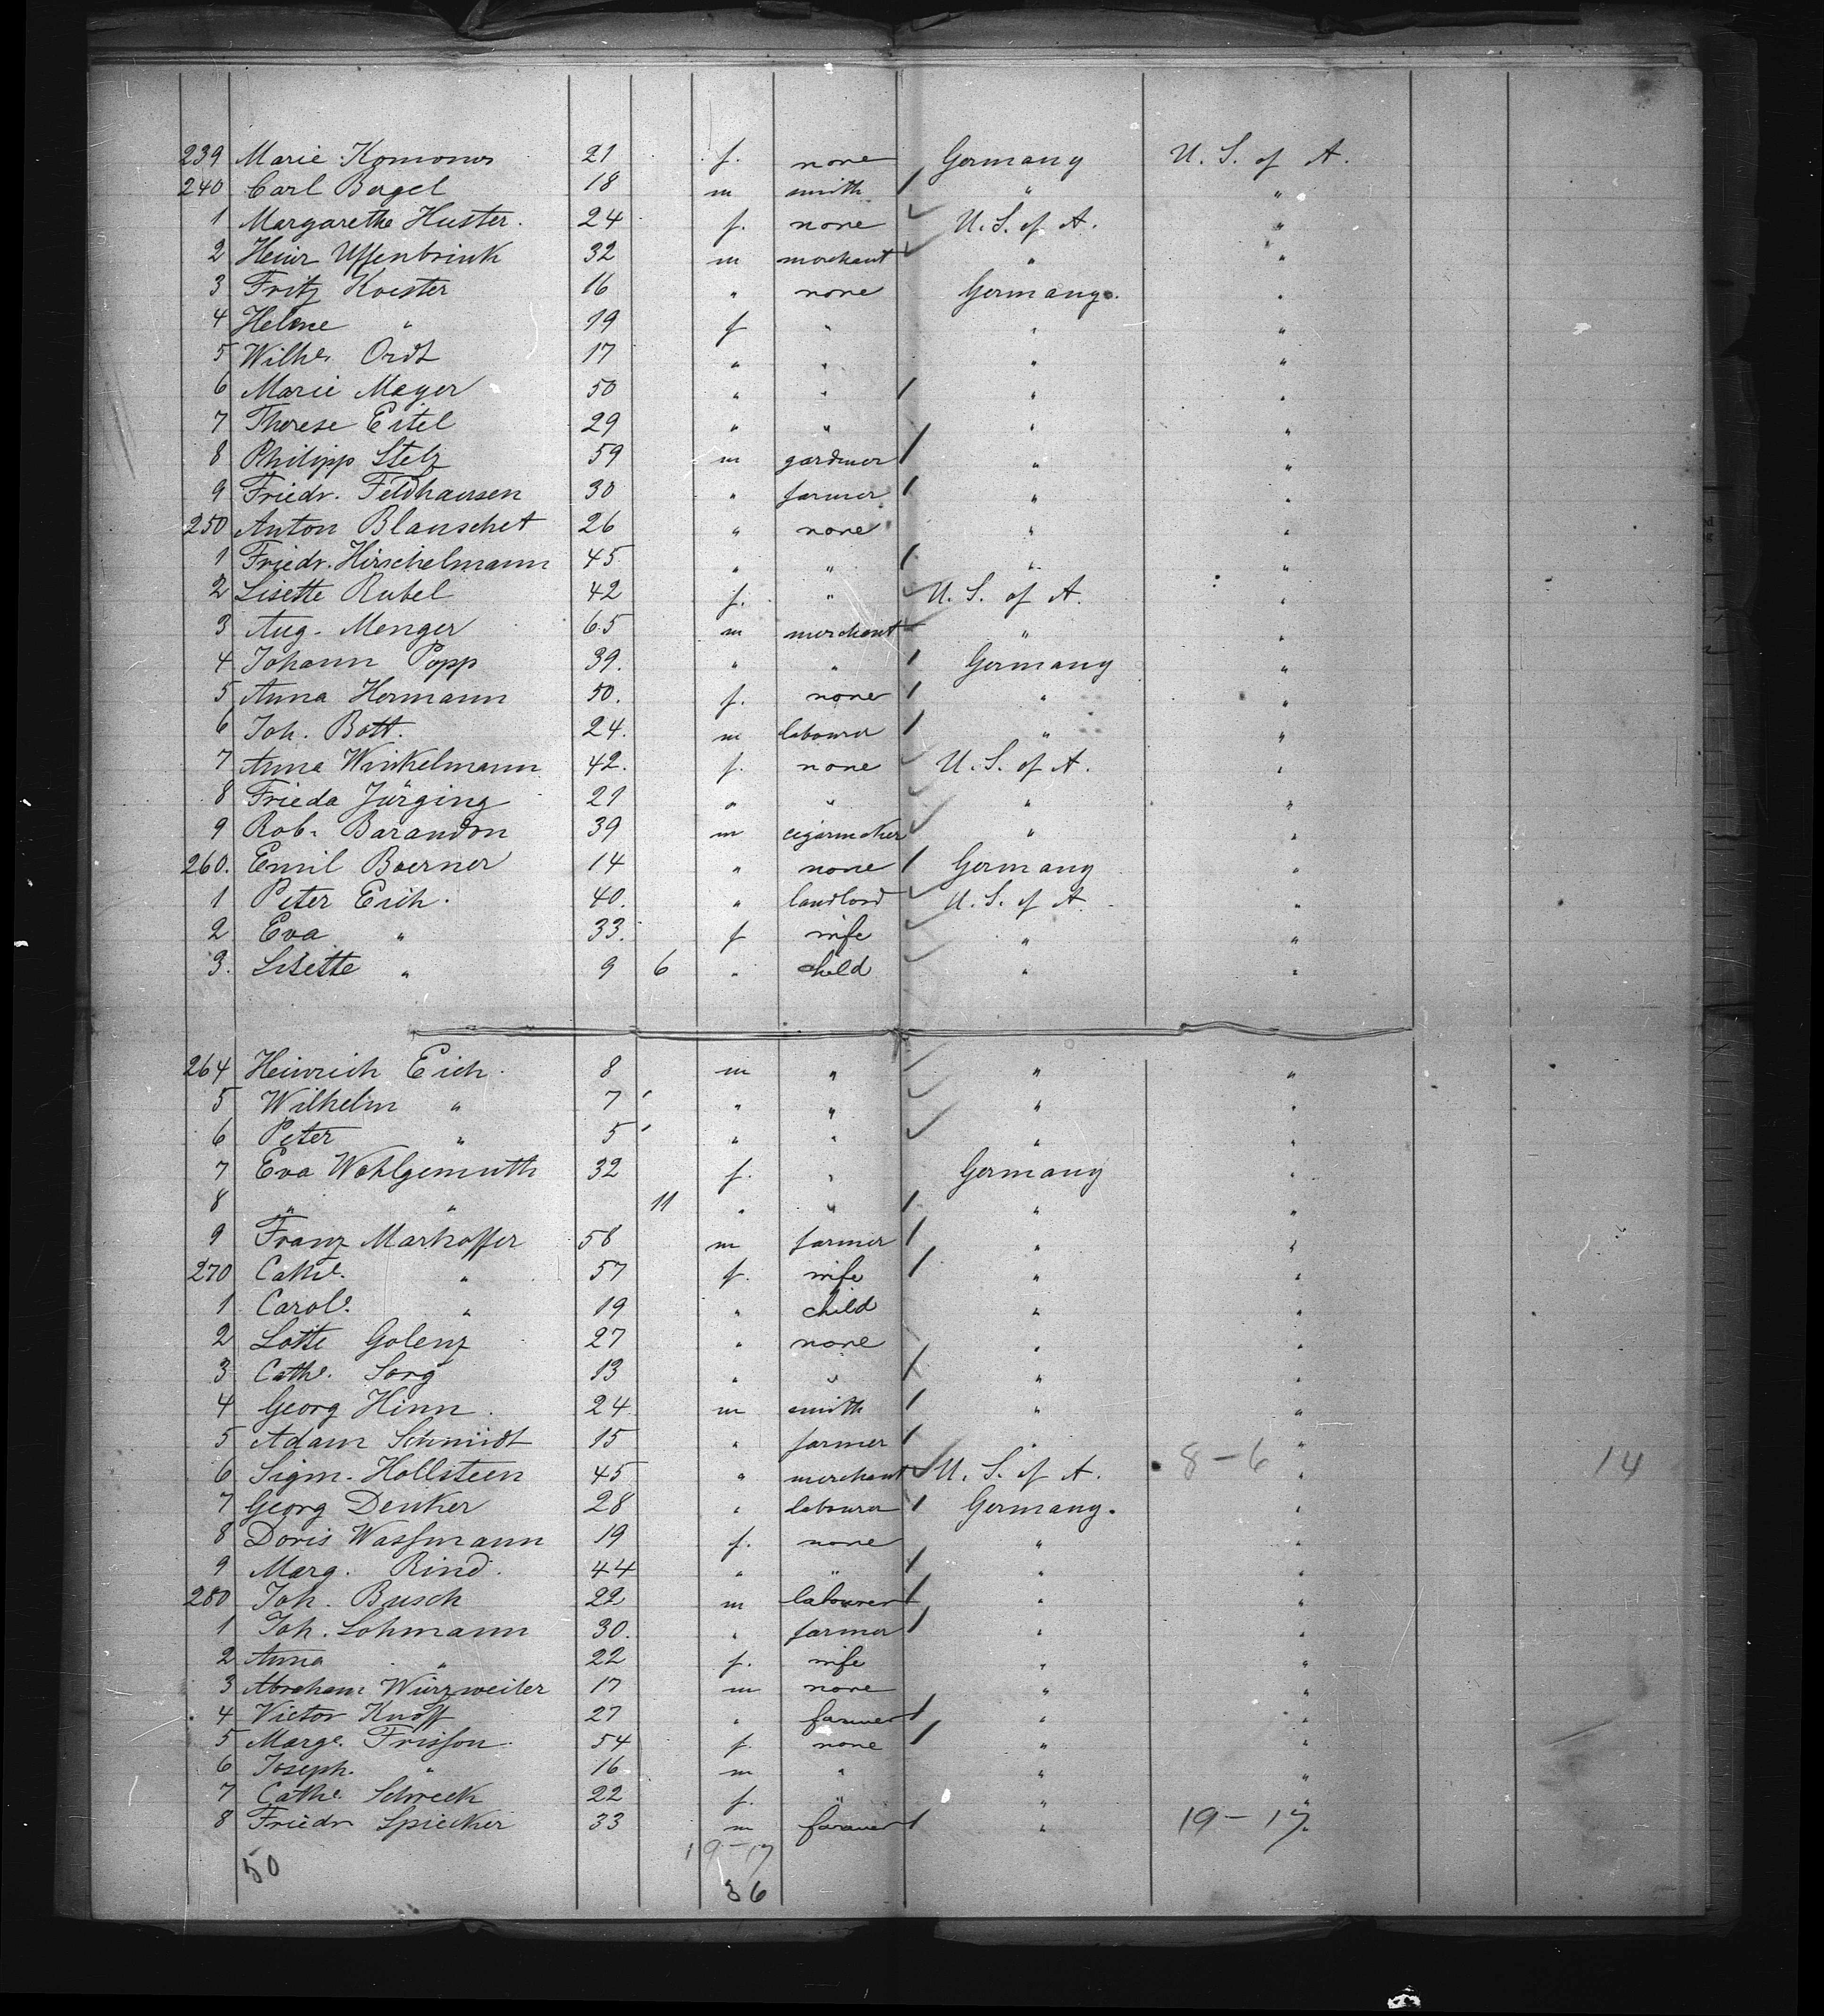 239 Marie Komonos 21 f. none Germany U. S. of A.
240 Carl Bergel 18 m smith / " "
1 Margarethe Huster. 24 f. none ✓ U. S. of A. "
2 Heinr Uffenbrink 32 m merchant ✓ " "
3 Fritz Koester 16 " none Germany. "
4 Helene " 19 f " " "
5 Wilhe. Ordt 17 " " " "
6 Marie Meyer 50 " " / " "
7 Therese Eitel 29 " " " "
8 Philipp Stelz 59 m gardener / " "
9 Friedr. Feldhaussen 30 " farmer / " "
250 Anton Blauschet 26 " none " "
1 Friedr. Hirschelmann 45 " " / " "
2 Lisette Rubel 42 f. " ✓ U. S. of A. "
3 Aug. Menger 65 m merchant ✓ " "
4 Johann Popp 39. " " / Germany "
5 Anna Hermann 50. f. none / " "
6 Joh. Bott. 24. m labourer / " "
7 Anna Winkelmann 42. f. none ✓ U. S. of A. "
8 Frieda Jürging 21 " " ✓ " "
9 Rob. Barandon 39 m cigarmaker ✓ " "
260. Emil Boerner 14 " none / Germany "
1 Peter Eich. 40. " landlord ✓ U. S. of A. "
2 Eva " 33. f wife ✓ " "
3. Lisette " 9 6 " child ✓ " "
264 Heinrich Eich. 8 m " ✓ " "
5 Wilhelm " 7 " " ✓ " "
6 Peter " 5 " " ✓ " "
7 Eva Wohlgemuth 32 f. " Germany "
8 " " 11 " " / " "
9 Franz Marhoffer 58 m farmer / " "
270 Cathe. " 57 f. wife / " "
1 Carole. " 19 " child " "
2 Lotte Golenz 27 " none " "
3 Cathe. Sorg 13 " " / " "
4 Georg Hinn. 24 m smith / " "
5 Adam Schmidt 15 " farmer / " "
6 Sigm. Hollsteen 45 " merchant ✓ U. S. of A. 8-6 " 14
7 Georg Denker 28 " labourer / Germany. "
8 Doris Wassmann 19 f. none " "
9 Marg. Rind. 44 " " / " "
280 Joh. Busch 22 m labourer / " "
1 Joh. Lohmann 30. " farmer / " "
2 Anna " 22 f. wife " "
3 Abraham Würzweiler 17 m none " "
4 Victor Knoff 27 " farmer / " "
5 Marge. Frisson. 54 f. none / " "
6 Joseph. " 16 m " " "
7 Cathe. Schreck 22 f. " " "
8 Friedr Spiecker 33 m farmer / " 19-17 "
50 19-17
36